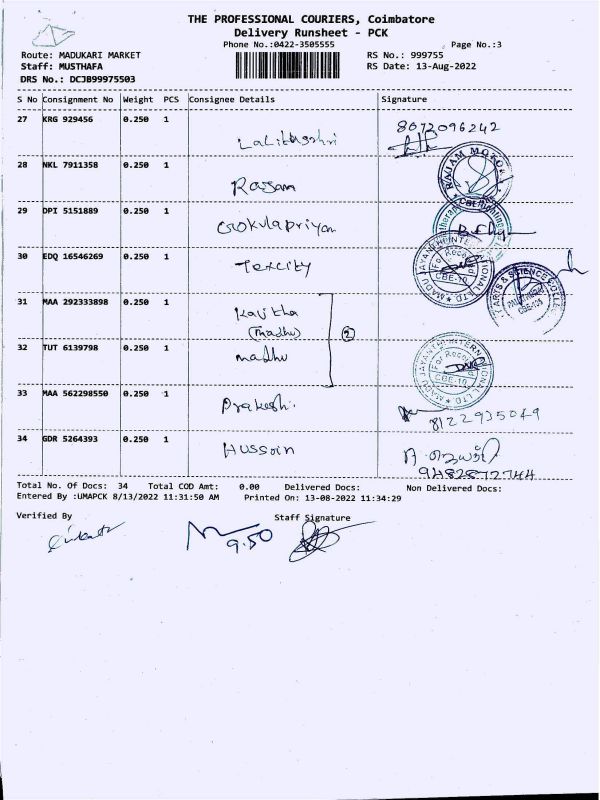 THE PROFESSIONAL COURIERS, Coimbatore
Delivery Runsheet - PCK
Phone No.:0422-3505555
Page No.:3
Route: MADUKARI MARKET
RS No.: 999755
Staff: MUSTHAFA
RS Date: 13-Aug-2022
DRS No.: DCJB99975503
S No Consignment No Weight PCS Consignee Details Signature
27 KRG 929456 0.250 1 8072096242
28 NKL 7911358 0.250 1 RAJAM MOTORS
Rajam
29 DPI 5151889 0.250 1
Gokulapriyan
30 EDQ 16546269 0.250 1 MADU JAYANTHI INTERNATIONAL LTD For Rooood CBE-10
Texcity
ARTS & SCIENCE COLLEGE
31 MAA 292333898 0.250 1
Kavitha
(madhu) 2
32 TUT 6139798 0.250 1 MADU JAYANTHI INTERNATIONAL LTD CBE-10
madhu
33 MAA 562298550 1 0.250
Prakash. 8122935049
34 GDR 5264393 0.250 1
Hussain
9482872744
Total No. Of Docs: 34 Total COD Amt: 0.00 Delivered Docs: Non Delivered Docs:
Entered By :UMAPCK 8/13/2022 11:31:50 AM Printed On: 13-08-2022 11:34:29
Verified By Staff Signature
9.50